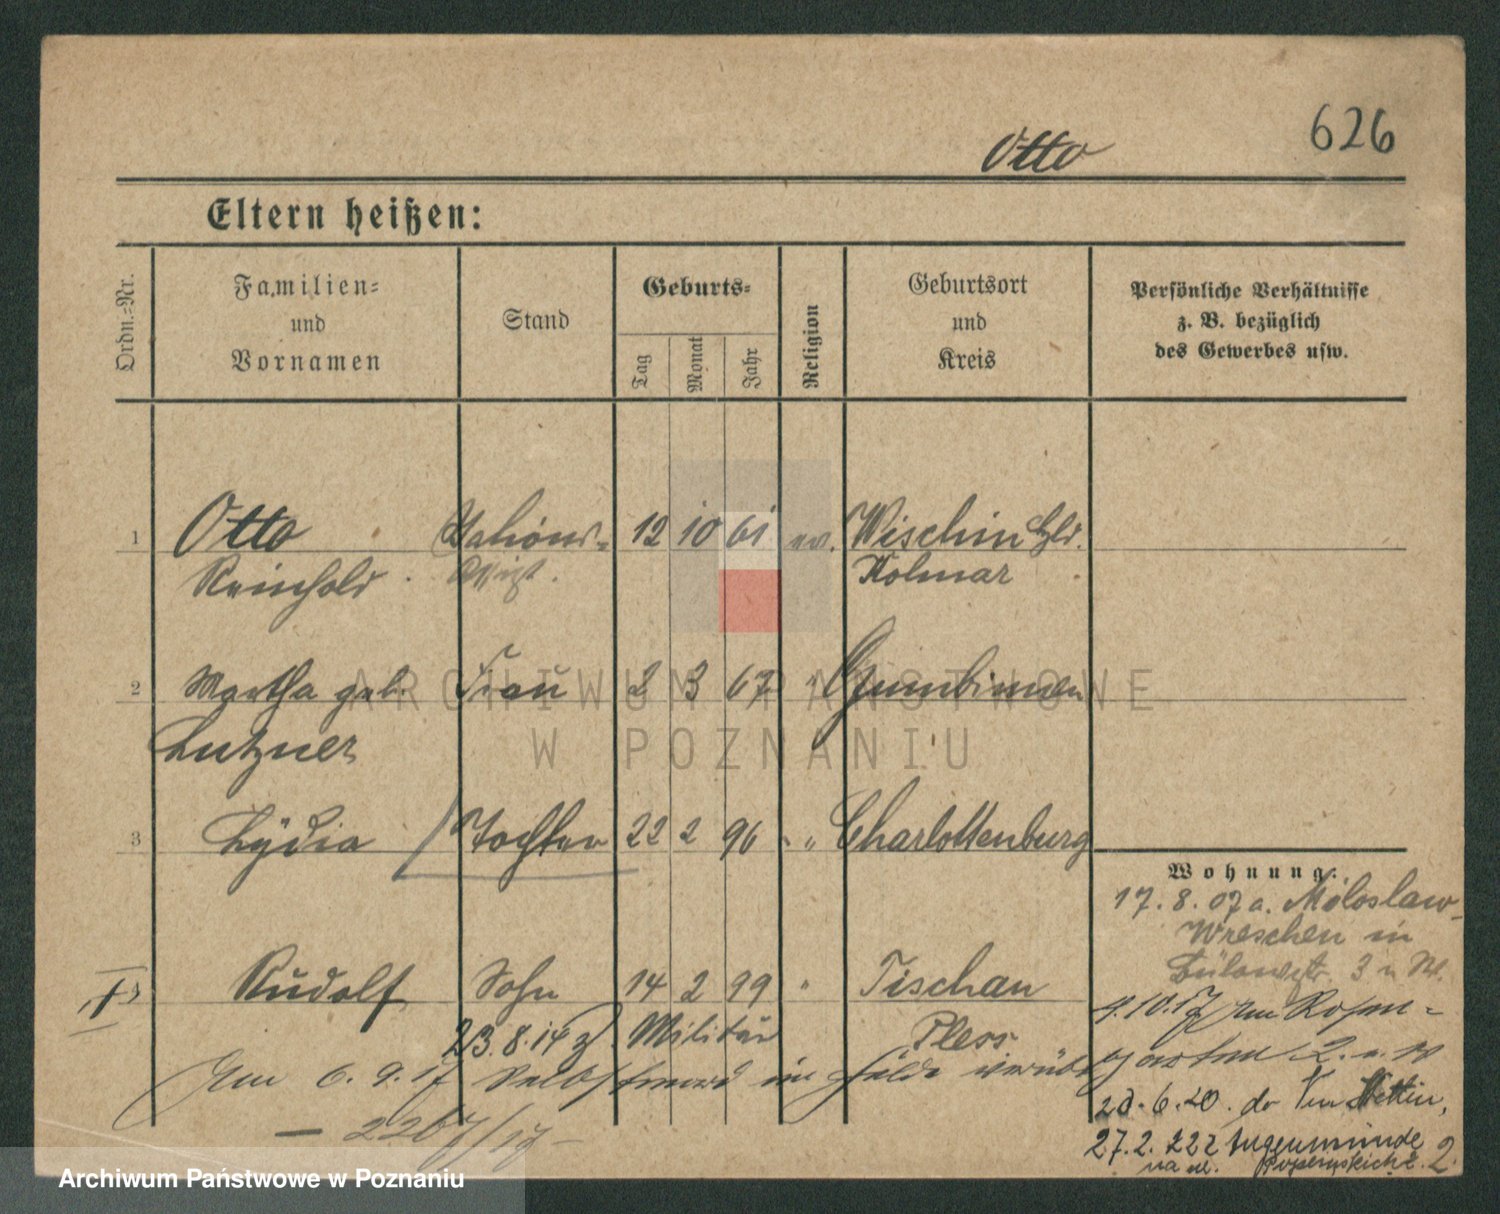 626
Otto
Eltern heißen:
Ordn.-Nr.
Familien-
und
Vornamen
Stand
Geburts-
Tag
Monat
Jahr
Religion
Geburtsort
und
Kreis
Persönliche Verhältnisse
z. B. bezüglich
des Gewerbes usw.
1 Otto Stations- 12 10 61 ev. Wischin Hld.
Reinhold Kolmar
2 Martha geb. Frau 2 3 67 " Gumbinnen
Lutzner
3 Lydia Tochter 22 2 96 " Charlottenburg
Wohnung:
17.8.07 a. Miloslaw-
Wreschen in
3 u W.
4 Rudolf Sohn 14 2 99 " Tischau
Pless
23.8.14 z. Militär
4.10.17 Am Rosen-
garten 2.
Am 6.9.17 Selbstmord im Felde verübt
28.6.20. do Stettin,
— 2267/17 —
27.2.222 Angermünde
na ul. 2.
ARCHIWUM PAŃSTWOWE
W POZNANIU
Archiwum Państwowe w Poznaniu